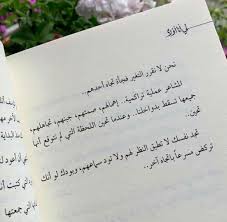 نحن لا نقرر التغير فجأة تجاه أحدهم..
المشاعر عملية تراكمية.. إهمالهم، صمتهم، جبنهم، تجاهلهم،
جميعها تسقط بدواخلنا.. وعندما تحين اللحظة التي لم تتوقع أنها
تحين..
تجد نفسك لا تطيق النظر لهم ولا تود سماعهم، وبودك لو أنك
تركض مسرعاً باتجاه آخر..